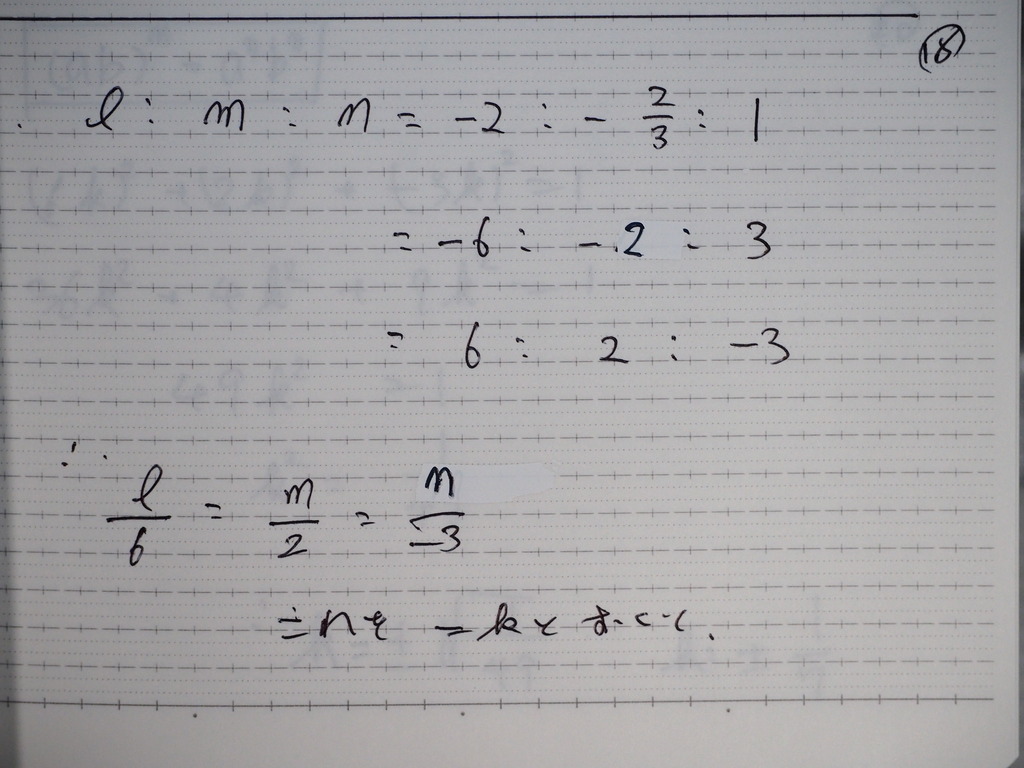 ⑱
l : m : n = -2 : - 2/3 : 1
= -6 : -2 : 3
= 6 : 2 : -3
∴
l/6 = m/2 = n/-3
これを = k とおくと.